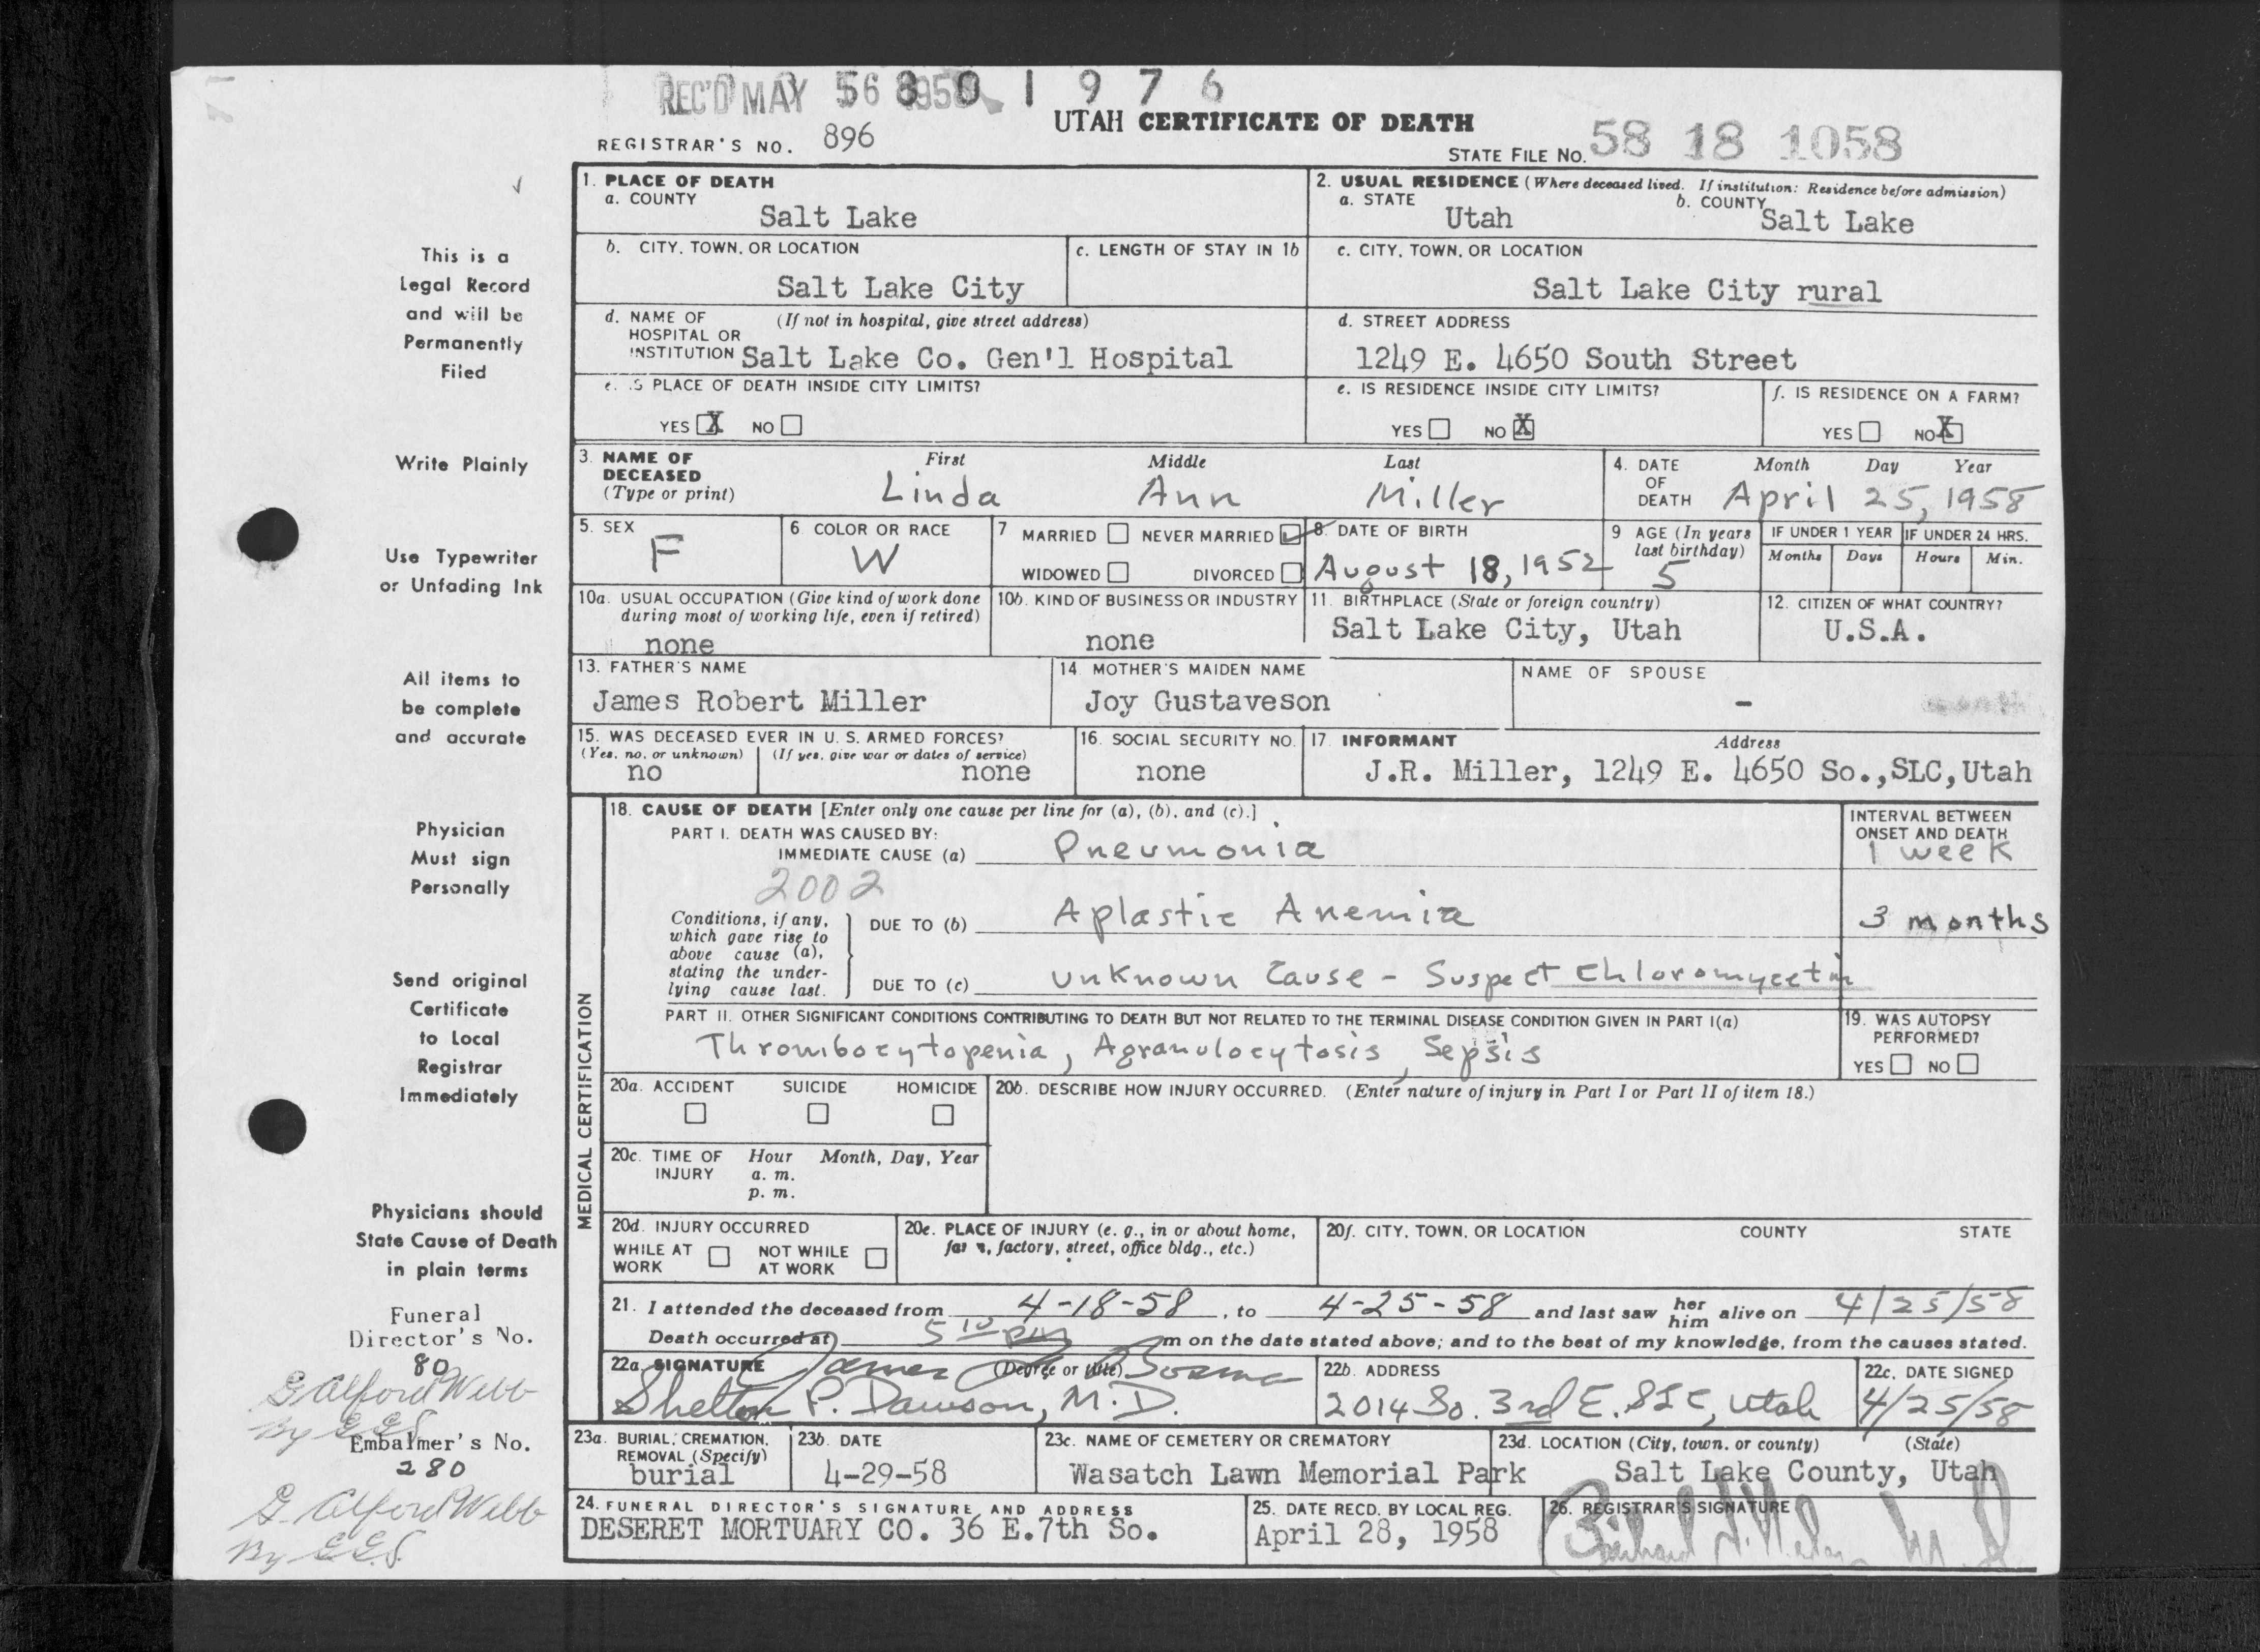 REC'D MAY
1 9 7 6
UTAH CERTIFICATE OF DEATH
REGISTRAR'S NO. 896
STATE FILE NO. 58 18 1058
This is a
Legal Record
and will be
Permanently
Filed
Write Plainly
Use Typewriter
or Unfading Ink
All items to
be complete
and accurate
Physician
Must sign
Personally
Send original
Certificate
to Local
Registrar
Immediately
Physicians should
State Cause of Death
in plain terms
Funeral
Director's No.
80
G Alford Webb
By
Embalmer's No.
280
G. Alford Webb
By
1. PLACE OF DEATH
a. COUNTY
Salt Lake
2. USUAL RESIDENCE (Where deceased lived. If institution: Residence before admission)
a. STATE b. COUNTY
Utah Salt Lake
b. CITY, TOWN, OR LOCATION
Salt Lake City
c. LENGTH OF STAY IN 1b
c. CITY, TOWN, OR LOCATION
Salt Lake City rural
d. NAME OF (If not in hospital, give street address)
HOSPITAL OR
INSTITUTION Salt Lake Co. Gen'l Hospital
d. STREET ADDRESS
1249 E. 4650 South Street
e. IS PLACE OF DEATH INSIDE CITY LIMITS?
YES X NO
e. IS RESIDENCE INSIDE CITY LIMITS?
YES NO X
f. IS RESIDENCE ON A FARM?
YES NO X
3. NAME OF DECEASED
(Type or print)
First Middle Last
Linda Ann Miller
4. DATE OF DEATH Month Day Year
April 25, 1958
5. SEX
F
6 COLOR OR RACE
W
7 MARRIED NEVER MARRIED ✓
WIDOWED DIVORCED
8. DATE OF BIRTH
August 18, 1952
9 AGE (In years last birthday)
5
IF UNDER 1 YEAR
Months Days
IF UNDER 24 HRS.
Hours Min.
10a. USUAL OCCUPATION (Give kind of work done
during most of working life, even if retired)
none
10b. KIND OF BUSINESS OR INDUSTRY
none
11. BIRTHPLACE (State or foreign country)
Salt Lake City, Utah
12. CITIZEN OF WHAT COUNTRY?
U.S.A.
13. FATHER'S NAME
James Robert Miller
14. MOTHER'S MAIDEN NAME
Joy Gustaveson
NAME OF SPOUSE
-
15. WAS DECEASED EVER IN U. S. ARMED FORCES?
(Yes, no, or unknown) (If yes, give war or dates of service)
no none
16. SOCIAL SECURITY NO.
none
17. INFORMANT Address
J.R. Miller, 1249 E. 4650 So.,SLC,Utah
MEDICAL CERTIFICATION
18. CAUSE OF DEATH [Enter only one cause per line for (a), (b), and (c).]
PART I. DEATH WAS CAUSED BY:
IMMEDIATE CAUSE (a) Pneumonia
INTERVAL BETWEEN
ONSET AND DEATH
1 week
2002
Conditions, if any,
which gave rise to
above cause (a),
stating the under-
lying cause last.
DUE TO (b) Aplastic Anemia
3 months
DUE TO (c) Unknown Cause - Suspect Chloromycetin
PART II. OTHER SIGNIFICANT CONDITIONS CONTRIBUTING TO DEATH BUT NOT RELATED TO THE TERMINAL DISEASE CONDITION GIVEN IN PART I(a)
Thrombocytopenia, Agranulocytosis, Sepsis
19. WAS AUTOPSY
PERFORMED?
YES NO
20a. ACCIDENT SUICIDE HOMICIDE
20b. DESCRIBE HOW INJURY OCCURRED. (Enter nature of injury in Part I or Part II of item 18.)
20c. TIME OF INJURY Hour Month, Day, Year
a. m.
p. m.
20d. INJURY OCCURRED
WHILE AT WORK NOT WHILE AT WORK
20e. PLACE OF INJURY (e. g., in or about home,
factory, street, office bldg., etc.)
20f. CITY, TOWN, OR LOCATION COUNTY STATE
21. I attended the deceased from 4-18-58, to 4-25-58 and last saw her him alive on 4/25/58
Death occurred at 5 10 pm m on the date stated above; and to the best of my knowledge, from the causes stated.
22a. SIGNATURE (Degree or title)
James
Shelton P. Dawson, M.D.
22b. ADDRESS
2014 So. 3rd E. SLC, Utah
22c. DATE SIGNED
4/25/58
23a. BURIAL, CREMATION,
REMOVAL (Specify)
burial
23b. DATE
4-29-58
23c. NAME OF CEMETERY OR CREMATORY
Wasatch Lawn Memorial Park
23d. LOCATION (City, town, or county) (State)
Salt Lake County, Utah
24. FUNERAL DIRECTOR'S SIGNATURE AND ADDRESS
DESERET MORTUARY CO. 36 E.7th So.
25. DATE RECD. BY LOCAL REG.
April 28, 1958
26. REGISTRAR'S SIGNATURE